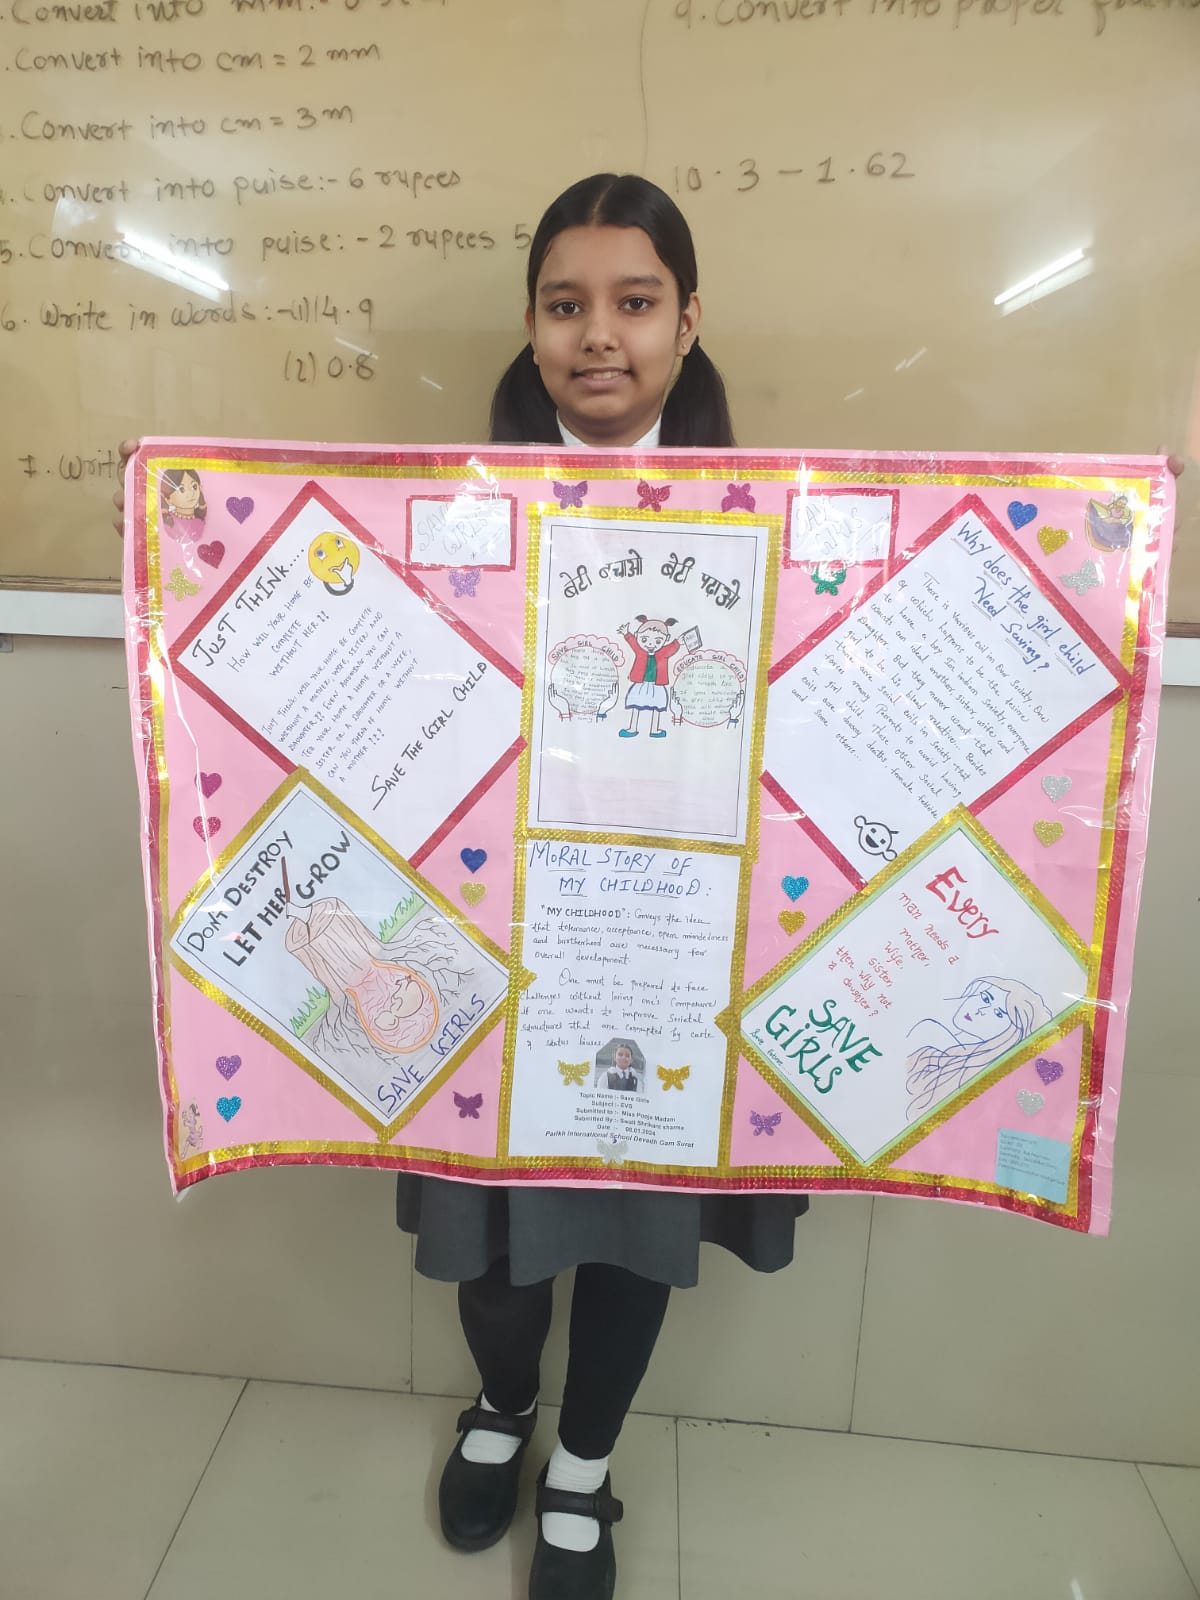 Convert into mm:-
Convert into cm = 2 mm
Convert into cm = 3 m
Convert into puise:- 6 rupees
5. Convert into puise:- 2 rupees 5
6. Write in words:- (1) 14.9
(2) 0.8
7. Write
9. Convert into proper
10. 3 - 1.62
JUST THINK....
HOW WILL YOUR HOME BE
COMPLETE
WITHOUT HER!!
JUST THINK WILL YOUR HOME BE COMPLETE
WITHOUT A MOTHER, WIFE, SISTER AND
DAUGHTER??
SISTER OR A DAUGHTER OR A WIFE,
CAN YOU THINK OF HOME WITHOUT
A MOTHER???
SAVE THE GIRL CHILD
SAVE
GIRLS
बेटी बचाओ बेटी पढ़ाओ
SAVE GIRL CHILD
EDUCATE GIRL CHILD
SAVE
GIRLS
Why does the girl child
Need Saving?
There is Various evil in Our Society, One
of which happens to be the desire
to have a boy. In Indian Society, everyone
wants an ideal mother, sister, wife and
Daughter. But they never want that
girl to be his blood relative. Besides
there are Social evils in Society that
force many Parents to avoid having
a girl child. These other Social
evils are dowry deaths, female foeticide
and some others...
DON'T DESTROY
LET HER GROW
SAVE GIRLS
MORAL STORY OF
MY CHILDHOOD:
"MY CHILDHOOD": Conveys the idea
that tolerance, acceptance, open mindedness
and brotherhood are necessary for
overall development.
One must be prepared to face
Challenges without losing one's Composure
if one wants to improve Societal
structures that are corrupted by caste
& status biases.
Topic Name :- Save Girls
Subject :- EVS
Submitted to :- Miss Pooja Madam
Submitted By :- Swati Shrikant sharma
Date :- 09.01.2024
Parikh International School Devadh Gam Surat
Every
man needs a
mother,
Wife,
sister,
then why not
a
daughter?
SAVE
GIRLS